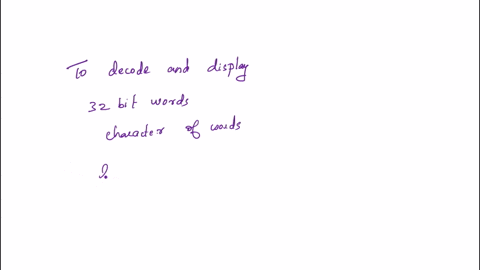 To decode and display
32 bit words
character of words